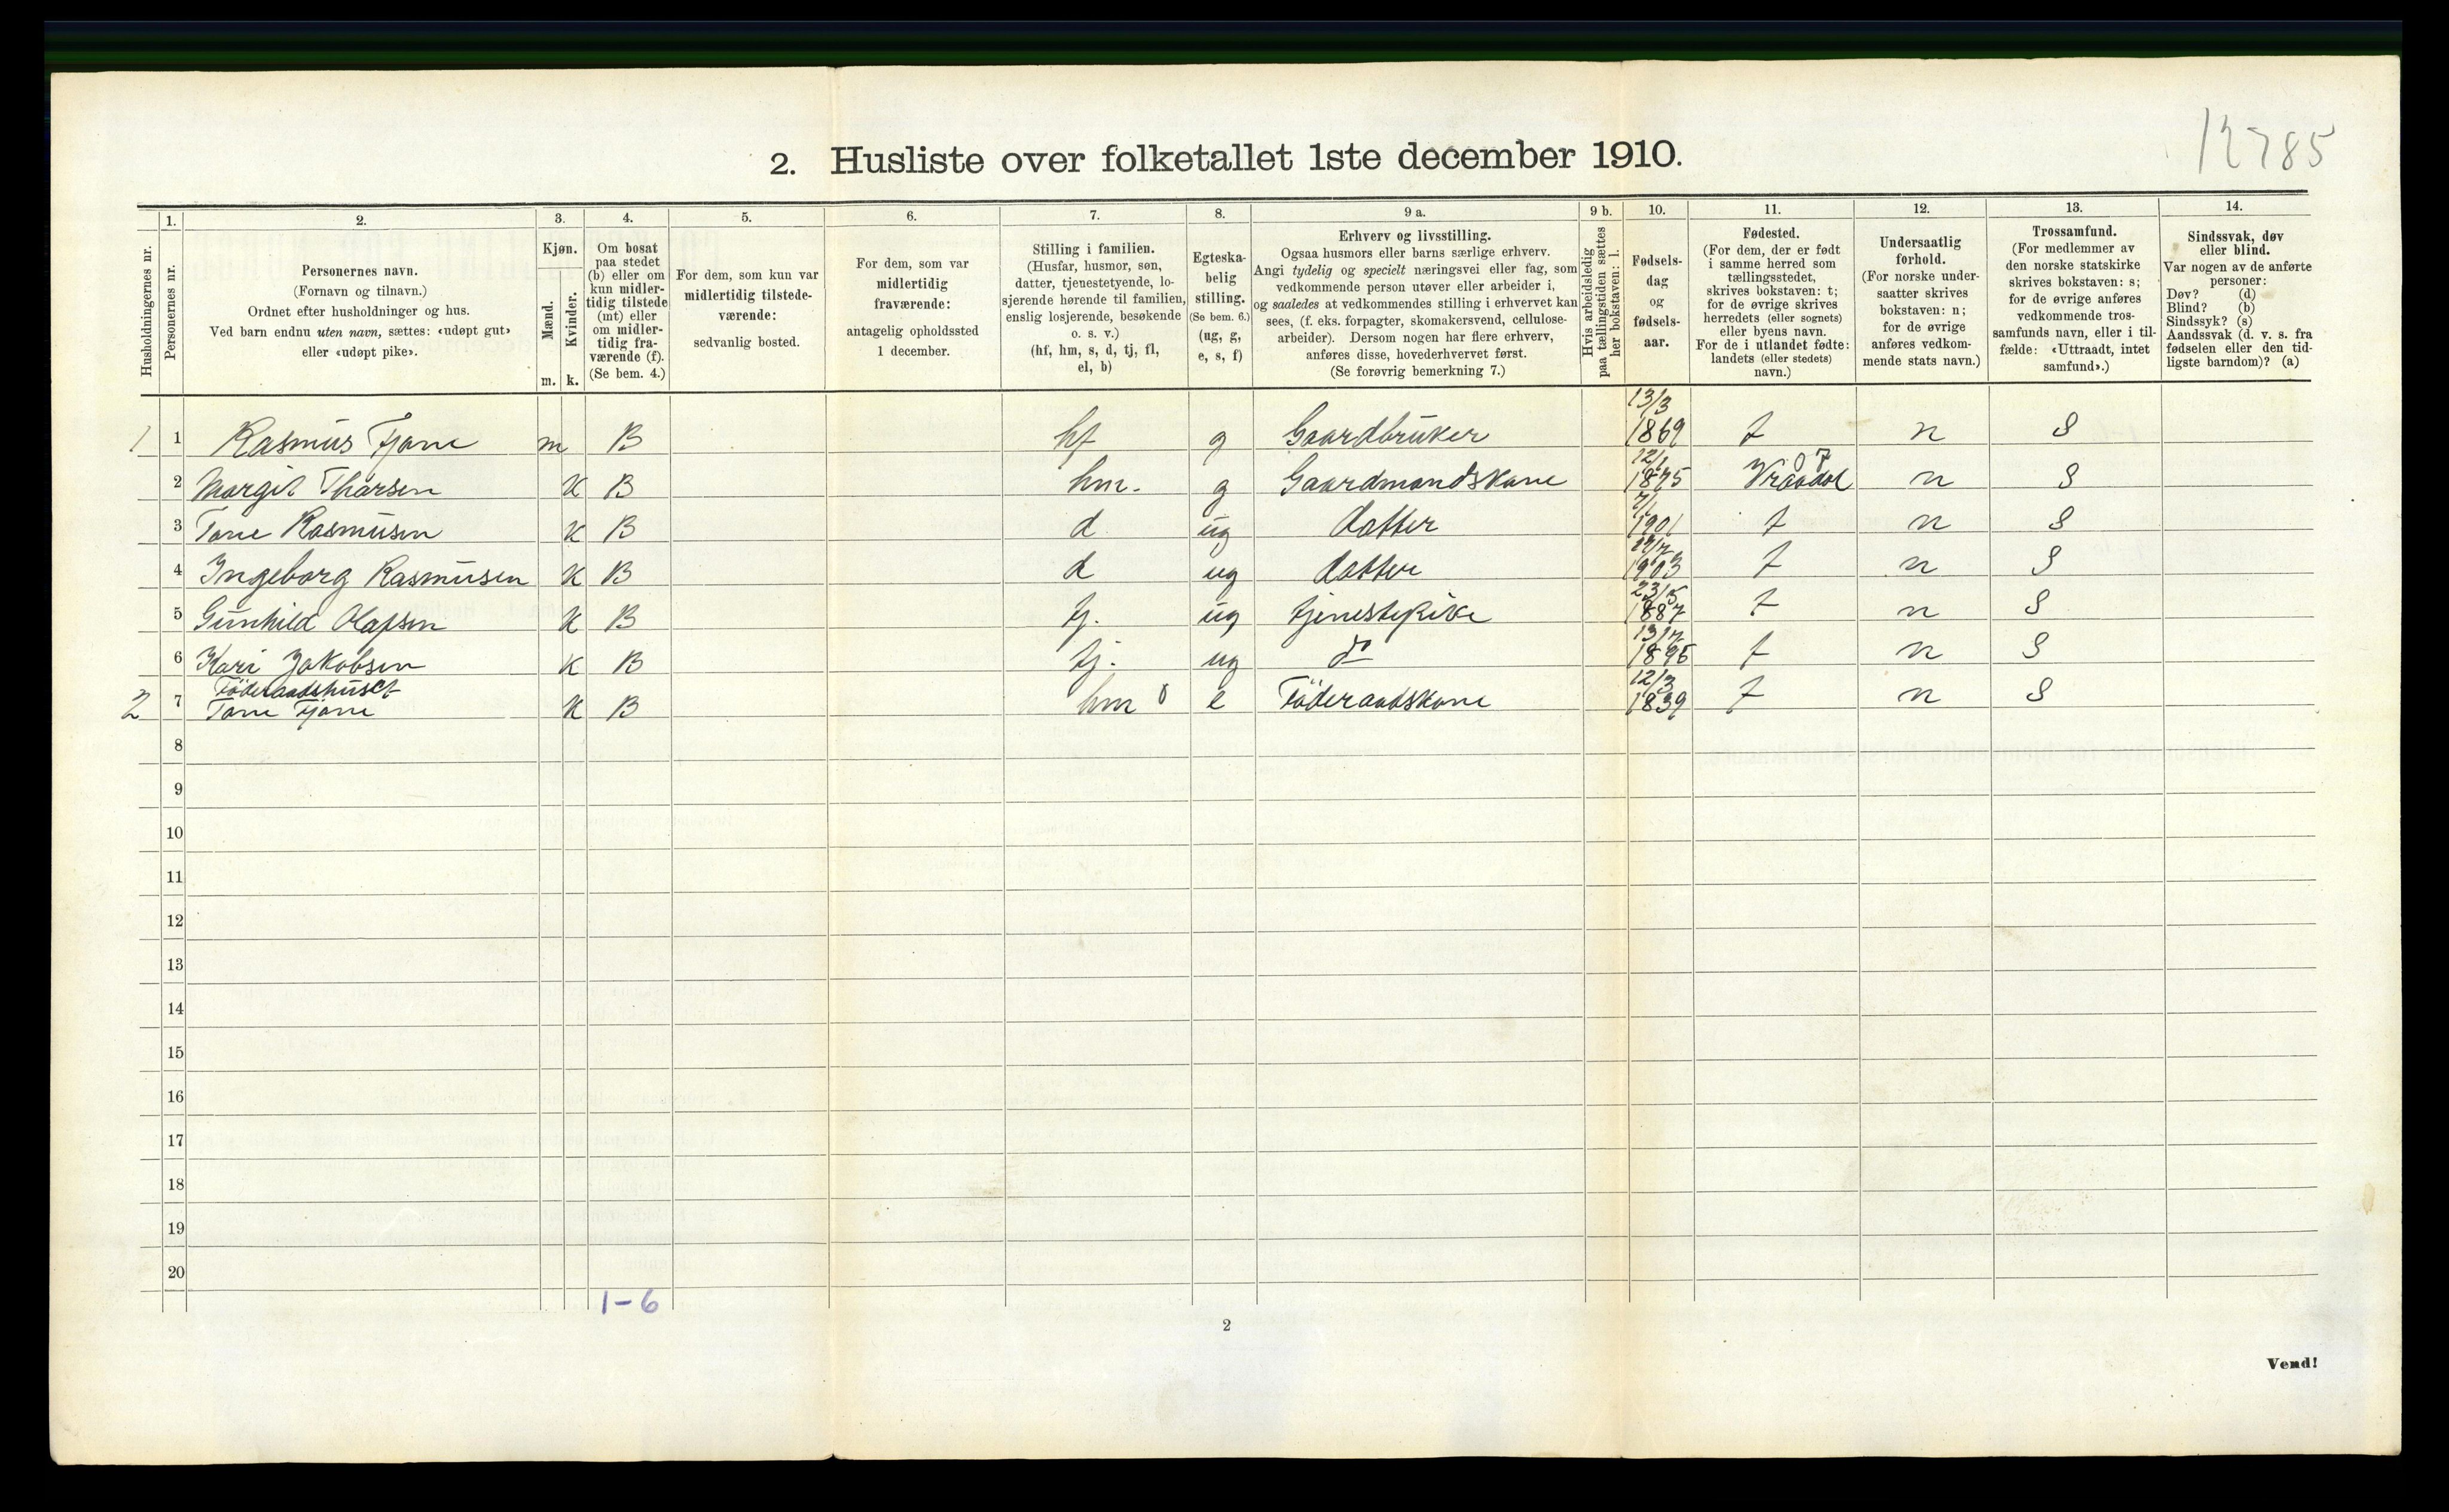 12785
2. Husliste over folketallet 1ste december 1910.
Husholdningernes nr.
1.
Personernes nr.
2.
Personernes navn.
(Fornavn og tilnavn.)
Ordnet efter husholdninger og hus.
Ved barn endnu uten navn, sættes: «udøpt gut»
eller «udøpt pike».
3.
Kjøn.
Mænd.
Kvinder.
m. k.
4.
Om bosat
paa stedet
(b) eller om
kun midler-
tidig tilstede
(mt) eller
om midler-
tidig fra-
værende (f).
(Se bem. 4.)
5.
For dem, som kun var
midlertidig tilstede-
værende:
sedvanlig bosted.
6.
For dem, som var
midlertidig
fraværende:
antagelig opholdssted
1 december.
7.
Stilling i familien.
(Husfar, husmor, søn,
datter, tjenestetyende, lo-
sjerende hørende til familien,
enslig losjerende, besøkende
o. s. v.)
(hf, hm, s, d, tj, fl,
el, b)
8.
Egteska-
belig
stilling.
(Se bem. 6.)
(ug, g,
e, s, f)
9 a.
Erhverv og livsstilling.
Ogsaa husmors eller barns særlige erhverv.
Angi tydelig og specielt næringsvei eller fag, som
vedkommende person utøver eller arbeider i,
og saaledes at vedkommendes stilling i erhvervet kan
sees, (f. eks. forpagter, skomakersvend, cellulose-
arbeider). Dersom nogen har flere erhverv,
anføres disse, hovederhvervet først.
(Se forøvrig bemerkning 7.)
9 b.
Hvis arbeidsledig
paa tællingstiden sættes
her bokstaven: l.
10.
Fødsels-
dag
og
fødsels-
aar.
11.
Fødested.
(For dem, der er født
i samme herred som
tællingsstedet,
skrives bokstaven: t;
for de øvrige skrives
herredets (eller sognets)
eller byens navn.
For de i utlandet fødte:
landets (eller stedets)
navn.)
12.
Undersaatlig
forhold.
(For norske under-
saatter skrives
bokstaven: n;
for de øvrige
anføres vedkom-
mende stats navn.)
13.
Trossamfund.
(For medlemmer av
den norske statskirke
skrives bokstaven: s;
for de øvrige anføres
vedkommende tros-
samfunds navn, eller i til-
fælde: «Uttraadt, intet
samfund».)
14.
Sindssvak, døv
eller blind.
Var nogen av de anførte
personer:
Døv? (d)
Blind? (b)
Sindssyk? (s)
Aandssvak (d. v. s. fra
fødselen eller den tid-
ligste barndom)? (a)
1 1 Rasmus Fjone m B hf g Gaardbruker 13/3 1869 t n S
2 Margit Tharsen K B hm. g Gaardmandskone 12/1 1875 Vraadal 07 n S
3 Tone Rasmusen K B d ug datter 7/1 1901 t n S
4 Ingeborg Rasmusen K B d ug datter 1903 t n S
5 Gunhild Olafsen K B tj. ug tjenestepike 23/5 1887 t n S
6 Kari Jakobsen K B tj. ug do 1895 t n S
Föderaadshuset
2 7 Tone Fjone K B hm e Föderaadskone 12/3 1839 t n S
8
9
10
11
12
13
14
15
16
17
18
19
20
1-6
2
Vend!